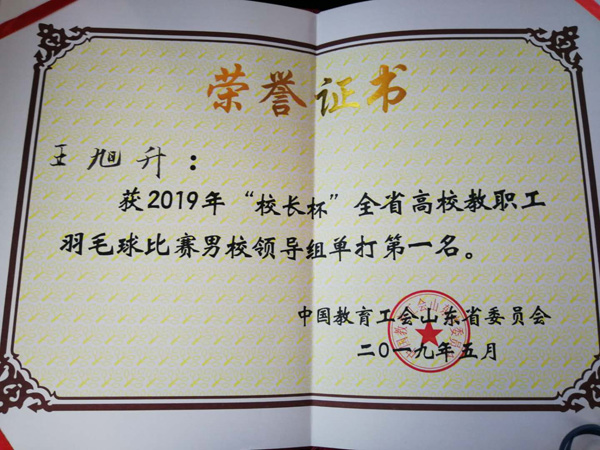 荣誉证书
王旭升：
获2019年“校长杯”全省高校教职工
羽毛球比赛男校领导组单打第一名。
中国教育工会山东省委员会
二〇一九年五月